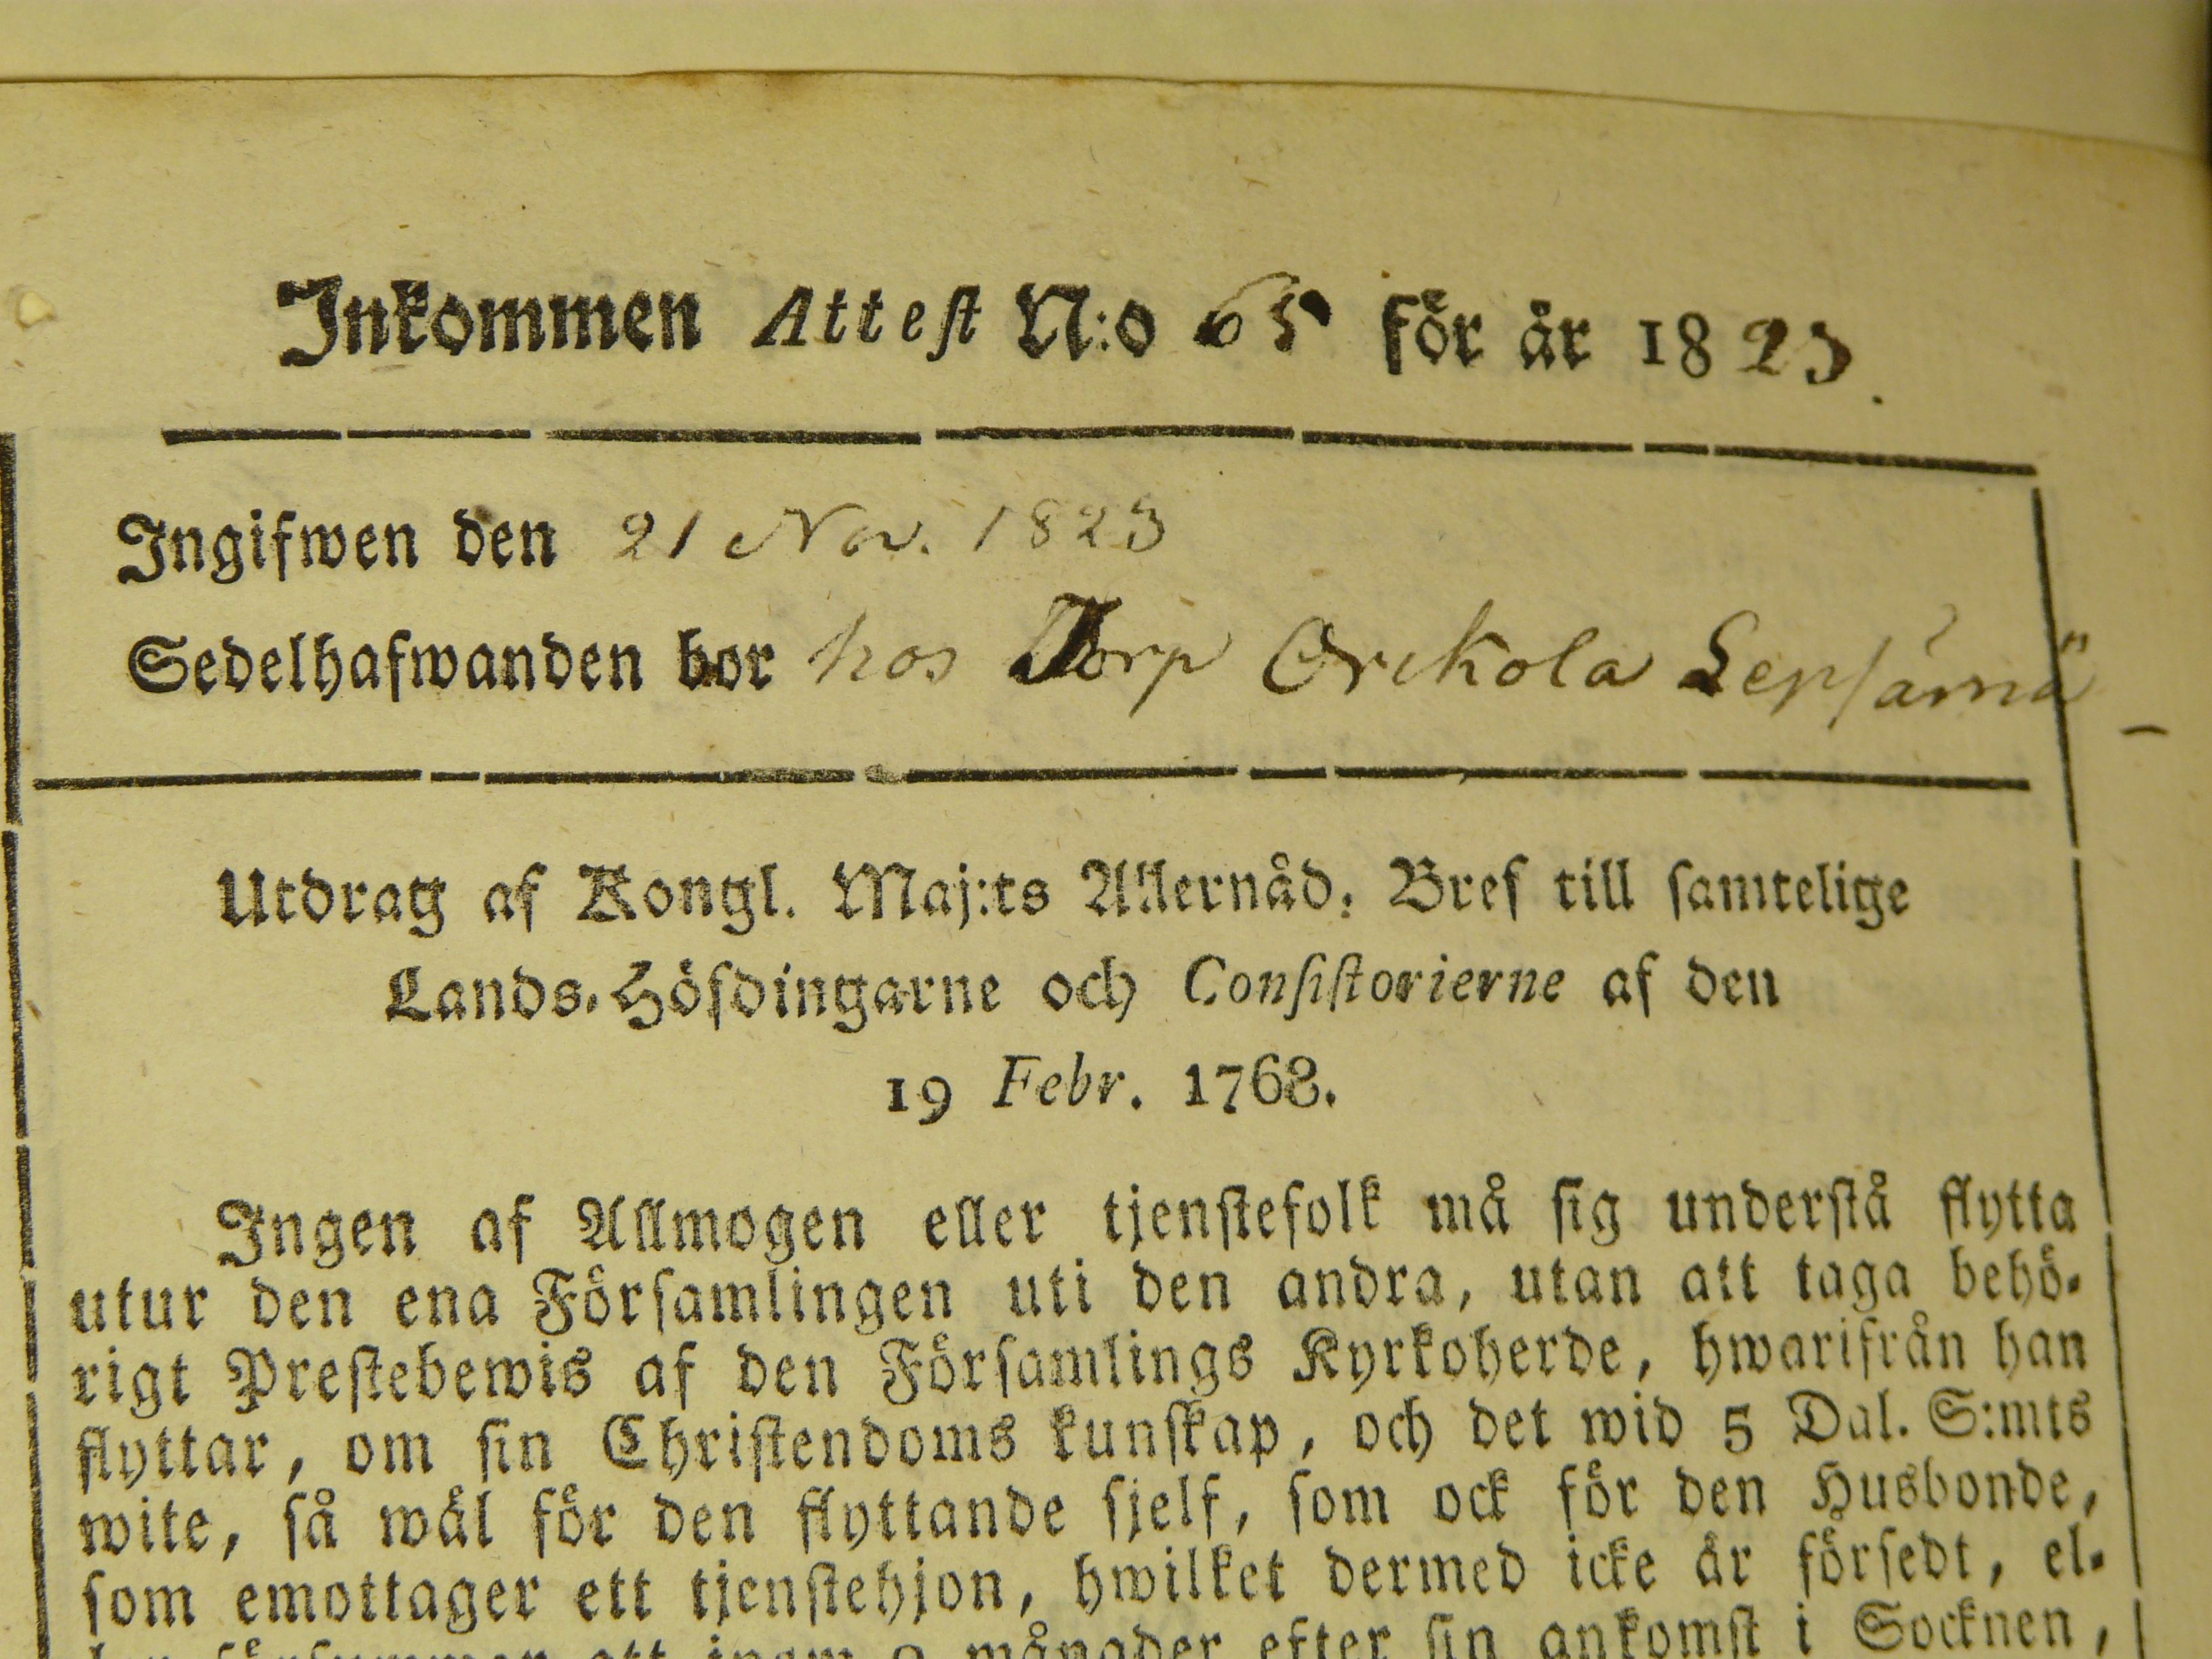 Inkommen Attest N:o 65 för år 1823.
Ingifwen den 21 Nov. 1823
Sedelhafwanden bor hos Torp Orikola Lepjämä
Utdrag af Kongl. Maj:ts Allernåd: Bref till samtelige
Lands-Höfdingarne och Consistorierne af den
19 Febr. 1768.
Ingen af Allmogen eller tjenstefolk må sig understå flytta
utur den ena Församlingen uti den andra, utan att taga behö-
rigt Prestebewis af den Församlings Kyrkoherde, hwarifrån han
flyttar, om sin Christendoms kunskap, och det wid 5 Dal. S:mts
wite, så wäl för den flyttande sjelf, som ock för den Husbonde,
som emottager ett tjenstehjon, hwilket dermed icke är försedt, el-
ler försummer att inom 2 månader efter sin ankomst i Socknen,